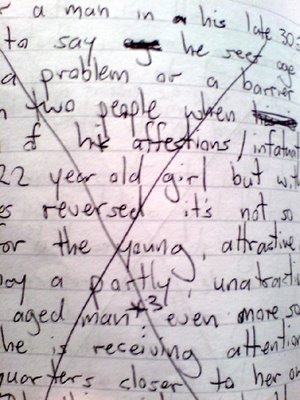 r a man in a his late 30s
to say he sees age
a problem or a barrier
n two people when
of his affections / infatuat
22 year old girl but with
es reversed it's not so
for the young, attractive
boy a portly, unattractive
aged man *3 even more so
he is receiving attention
quarters closer to her own